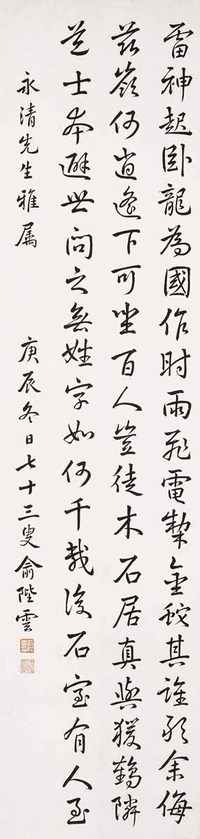 雷神起卧龍為國作时雨飛電掣金蛇其誰敢余侮
茲嶺何逍遙下可坐百人豈徒木石居真與猨鶴隣
道士本避世問之無姓字如何千載後石室有人至
永清先生雅屬
庚辰冬日七十三叟俞陛雲